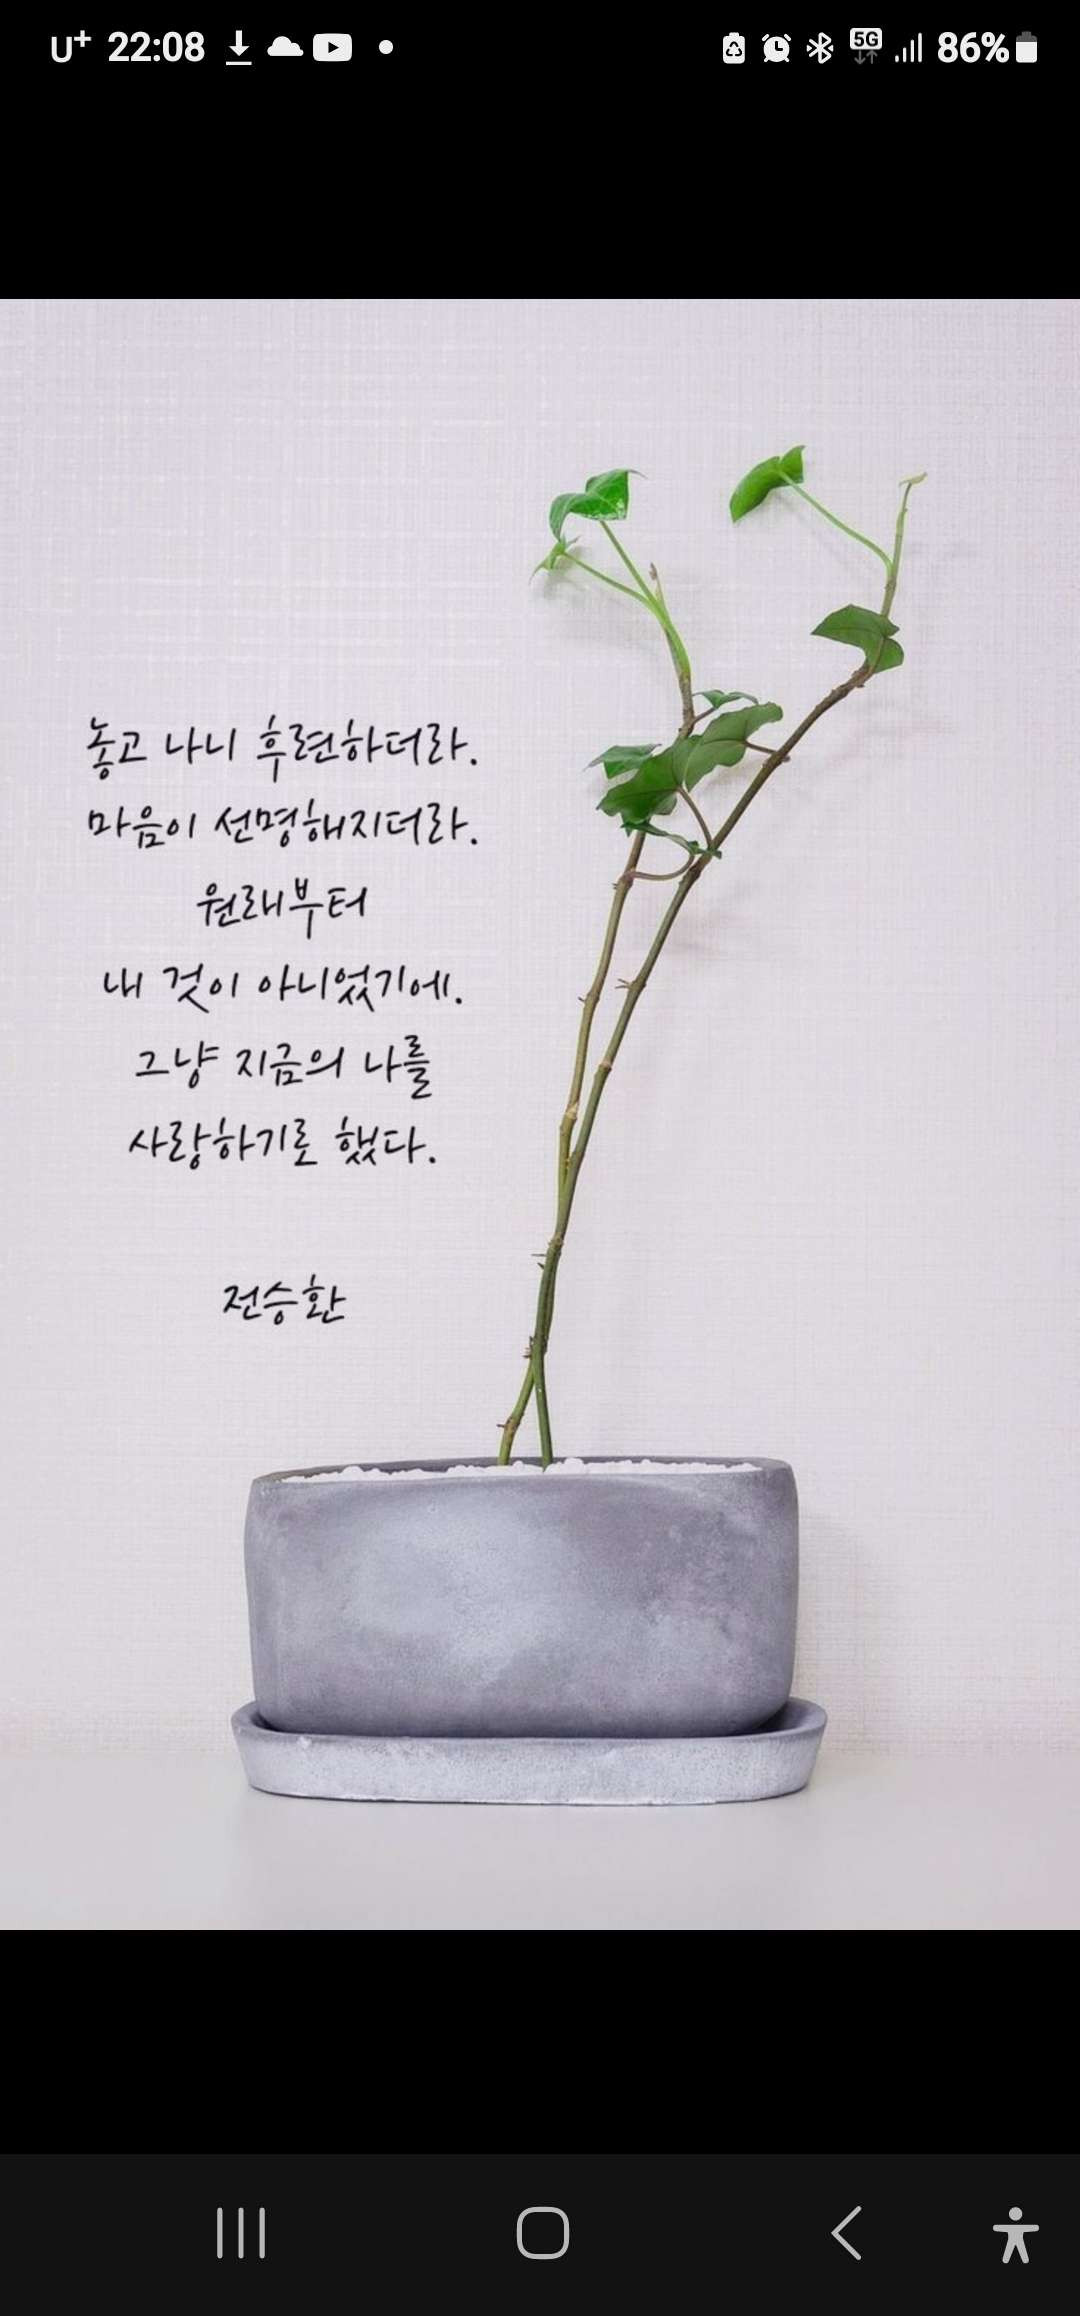 U+ 22:08 5G 86%
놓고 나니 후련하더라.
마음이 선명해지더라.
원래부터
내 것이 아니었기에.
그냥 지금의 나를
사랑하기로 했다.
전승환